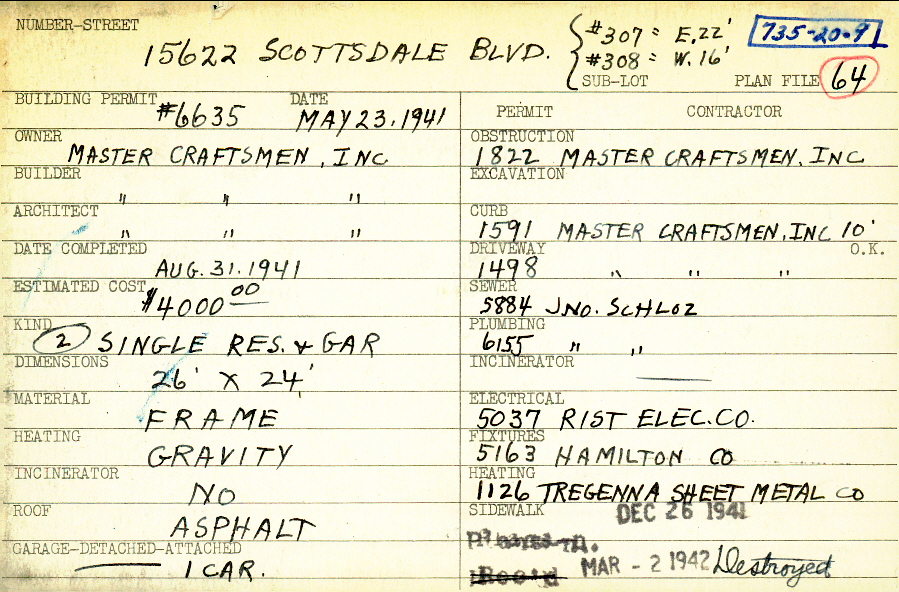 NUMBER-STREET
15622 SCOTTSDALE BLVD.
#307 = E.22'
#308 = W.16'
735-20-9
SUB-LOT PLAN FILE 64
BUILDING PERMIT #6635 DATE MAY 23, 1941
OWNER
MASTER CRAFTSMEN, INC
BUILDER
" " "
ARCHITECT
" " "
DATE COMPLETED
AUG. 31. 1941
ESTIMATED COST
$4000.00
KIND
2 SINGLE RES. & GAR
DIMENSIONS
26' X 24'
MATERIAL
FRAME
HEATING
GRAVITY
INCINERATOR
NO
ROOF
ASPHALT
GARAGE-DETACHED-ATTACHED
1 CAR.
PERMIT CONTRACTOR
OBSTRUCTION
1822 MASTER CRAFTSMEN, INC
EXCAVATION
CURB
1591 MASTER CRAFTSMEN, INC 10'
DRIVEWAY O.K.
1498 " " "
SEWER
5884 JNO. SCHLOZ
PLUMBING
6155 " "
INCINERATOR
ELECTRICAL
5037 RIST ELEC. CO.
FIXTURES
5163 HAMILTON CO
HEATING
1126 TREGENNA SHEET METAL CO
SIDEWALK DEC 26 1941
Rec'd MAR - 2 1942 Destroyed